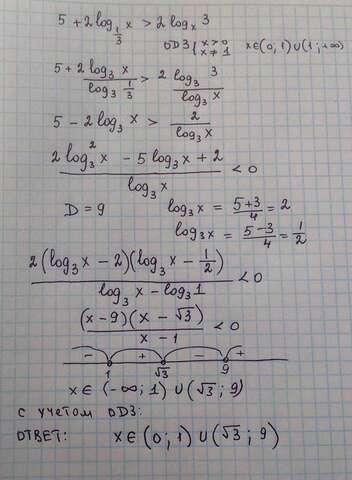 5 + 2 log_{1/3} x > 2 log_x 3
ОДЗ { x > 0 x ≠ 1 x ∈ (0; 1) ∪ (1; +∞)
5 + 2 log_3 x / log_3 1/3 > 2 log_3 3 / log_3 x
5 - 2 log_3 x > 2 / log_3 x
(2 log_3^2 x - 5 log_3 x + 2) / log_3 x < 0
D = 9 log_3 x = (5+3)/4 = 2
log_3 x = (5-3)/4 = 1/2
2(log_3 x - 2)(log_3 x - 1/2) / (log_3 x - log_3 1) < 0
(x-9)(x - √3) / (x - 1) < 0
- + - +
1 √3 9
x ∈ (-∞; 1) ∪ (√3; 9)
с учетом ОДЗ:
ОТВЕТ: x ∈ (0; 1) ∪ (√3; 9)